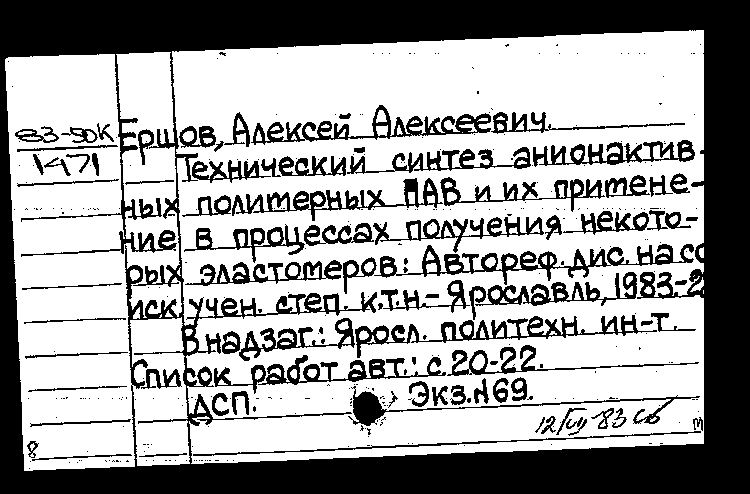 83-50К
1471
Ершов, Алексей Алексеевич.
Технический синтез анионактив-
ных политерных ПАВ и их притене-
ние в процессах получения некото-
рых эластомеров: Автореф. дис. на со
иск. учен. степ. к.т.н.- Ярославль, 1983.-2
В надзаг.: Яросл. политехн. ин-т.
Список работ авт.: с.20-22.
ДСП. Экз.№69.
12/VII-83
8